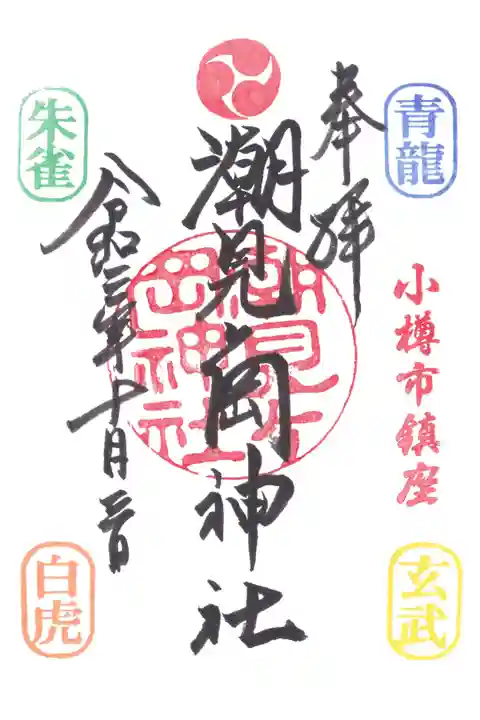 青龍
奉拝
小樽市鎮座
玄武
潮見ヶ岡神社
潮見ヶ岡神社
朱雀
令和三年十月三日
白虎